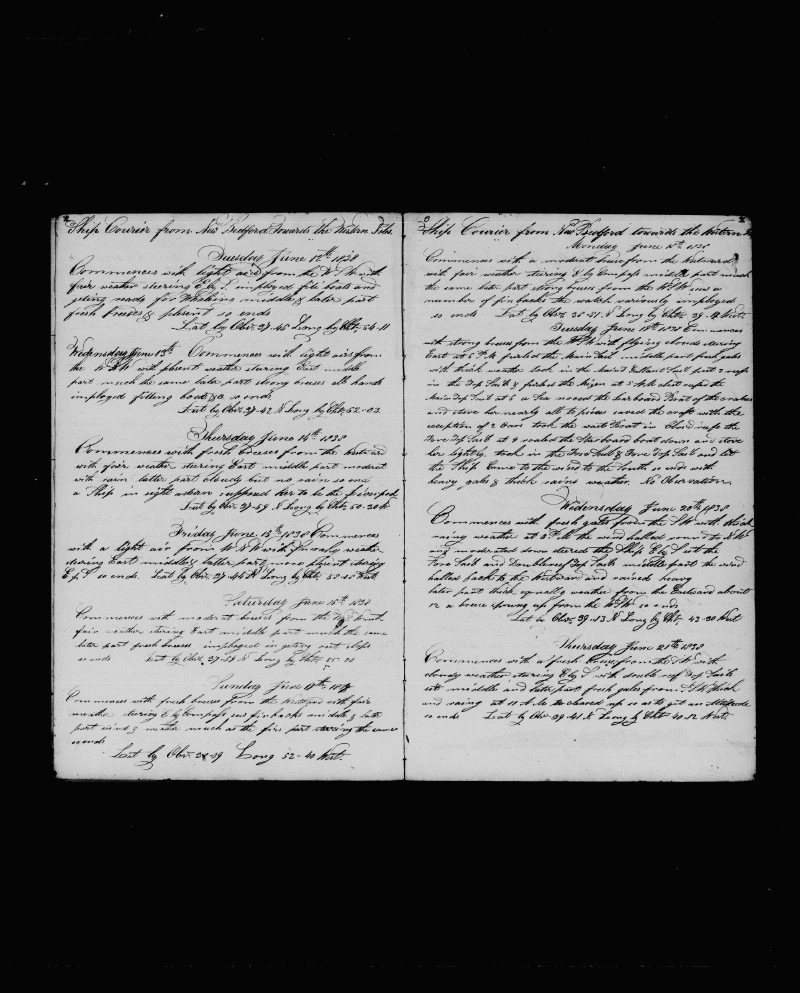 Ship Courier from New Bedford Towards the Western Isles
Tuesday June 12th 1838
Commences with light airs from the W S W with
fair weather steering E by S imployed file boats and
geting ready for Whaleing middle & later part
fresh breezes & plesent so ends
Lat by Obv. 37-45 Long by Chr. 54-11
Wednesday June 13th Commences with light airs from
the W S W with plesent weather steering East middle
part much the same later part strong breezes all hands
imployed filling boats &c so ends
Lat by Obv. 37-42 N Long by Chr. 52-03
Thursday June 14th 1838
Commences with fresh breezes from the Westward
with fair weather steering East middle part moderate
with rain latter part cloudy but no rain so ends
a Ship in sight astern supposed her to be the Liverpool
Lat by Obv 37-59 N Long by Chr. 50-20 W
Friday June 15th 1838 Commences
with a light air from W N W with Smoaky weather
steering East middle & latter part more plesent steering
E by S so ends. Lat by Obv. 37-46 N Long by Chr. West
Saturday June 16th 1838
Commences with moderate breezes from the South
fair weather steering East middle part much the same
later part fresh breezes imployed in geting out
so ends Lat by Obv. 37-51 N Long by Chr.
Sunday June 17th 1838
Commences with fresh breezes from the Westward with fair
weather steering E by Compass saw finbacks middle & late
part wind & weather much as the firs part steering the same
so ends
Lat by Obv. 38-39 Long 52-40 West.
Ship Courier from New Bedford towards the Western
Monday June 18th 1838
Commences with a moderate breeze from the Westward
with fair weather steering E by Compass middle part much
the same late part strong breezes from the W S W saw a
number of finbacks the watch variously imployed
so ends Lat by Obv. Long by Chr. West.
Tuesday June 19th 1838 Commences
with strong breezes from the W S W with flying clouds steering
East at 6 P.M. furled the Main Sail middle part fresh gales
with thick weather took in the Main Gallant Sail put 2 reefs
in the Top Sails & furled the Mizen at 5 A M close reefed the
Main Top Sail at 6 a Sea stoved the Larboard Boat of the cranes
and stove her nearly all to pices saved the craft with the
exception of 2 Oars took the waist Boat in Close reefs the
Fore Top Sail at 9 the Starboard boat down and stove
her lightly, took in the Fore Sail & Fore Top Sail and let
the Ship Come to the wind to the South so ends with
heavy gales & thick rainy weather. No Obervation.
Wedensday June 20th 1838
Commences with fresh gales from the S W with thick
rainy weather at 3 P M the wind halled round to N W
and moderated down steered the Ship E by S set the
Fore Sail and Doubblereef Top Sails middle part the wind
halled back to the Westward and rained heavy
later part thick squally weather from the Eastward about
12 a breeze sprung up from the W S W so ends
Lat by Obv. 39-13 N Long by Chr. 43-30 West
Thursday June 21th 1838
Commences with a fresh breeze from the with
cloudy weather steering E by S with double reef Top Sails
set middle and later part fresh gales from S W thick
and rainy at 11 A M it cleared up so as to get an Altitude
so ends Lat by Obv 39-41 N Long by Chr 40-12 West.